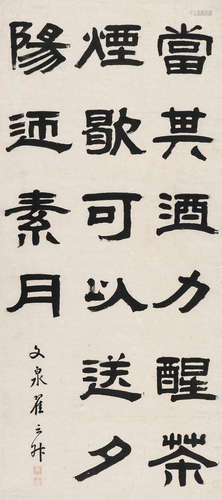 當其酒力醒茶
煙歇可以送夕
陽迊素月
文泉翟云升